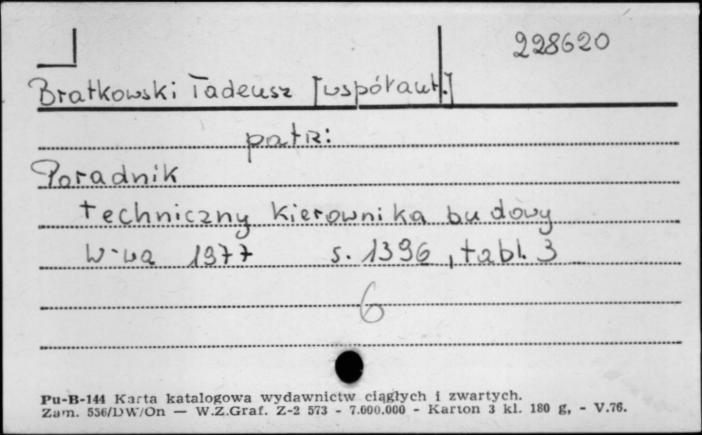 228620
Bratkowski Tadeusz [współaut.]
patrz:
Poradnik
techniczny kierownika budowy
W-wa 1977 s. 1396, tabl. 3
6
Pu-B-144 Karta katalogowa wydawnictw ciągłych i zwartych.
Zam. 556/DW/On — W.Z.Graf. Z-2 573 - 7.000.000 - Karton 3 kl. 180 g, - V.76.